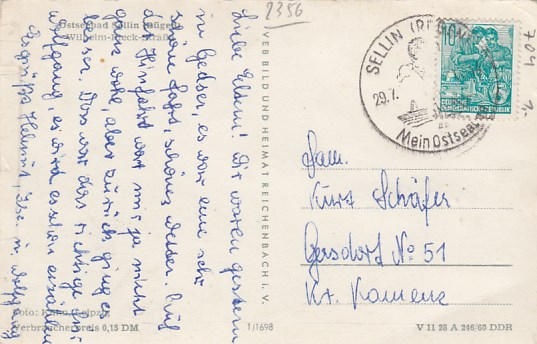 Ostseebad Sellin (Rügen)
Wilhelm-Pieck-Straße
Liebe Eltern! Wir waren gestern
in Gedser, es war eine sehr
schöne Fahrt, schönes Wetter. Auf
der Hinfahrt war mir ja nicht
ganz wohl, aber zurück ging es
besser. Das war das richtige für
Wolfgang, er wird es schon erzählen
Es grüßt Helmut, u. Wolfgang
Foto: Kühn, Leipzig
Verbraucherpreis 0,15 DM
1/1698
VEB BILD UND HEIMAT REICHENBACH I. V.
2356
SELLIN (RÜGEN)
29.7.
Mein Ostseebad
10
DEUTSCHE DEMOKRATISCHE REPUBLIK
704
1.-
Fam.
Kurt Schäfer
Gersdorf No 51
Kr. Kamenz
V 11 28 A 246/60 DDR